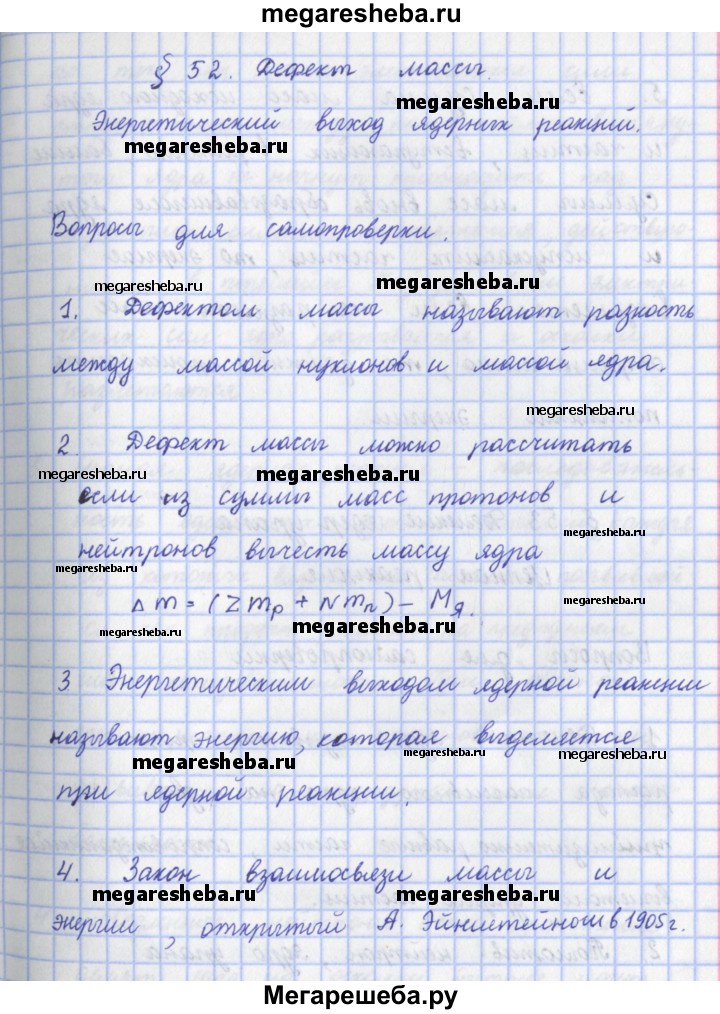 megaresheba.ru
§ 52. Дефект массы.
megaresheba.ru
Энергетический выход ядерных реакций.
megaresheba.ru
Вопросы для самопроверки.
megaresheba.ru megaresheba.ru
1. Дефектом массы называют разность
между массой нуклонов и массой ядра.
megaresheba.ru
2. Дефект массы можно рассчитать
megaresheba.ru megaresheba.ru
если из суммы масс протонов и
megaresheba.ru
нейтронов вычесть массу ядра
megaresheba.ru
Δm = (Zmp + Nmn) - Mя.
megaresheba.ru megaresheba.ru
3 Энергетическим выходом ядерной реакции
называют энергию, которая выделяется
megaresheba.ru megaresheba.ru megaresheba.ru
при ядерной реакции.
4. Закон взаимосвязи массы и
megaresheba.ru megaresheba.ru
энергии, открытый А. Эйнштейном в 1905 г.
megaresheba.ru
Мегарешеба.ру